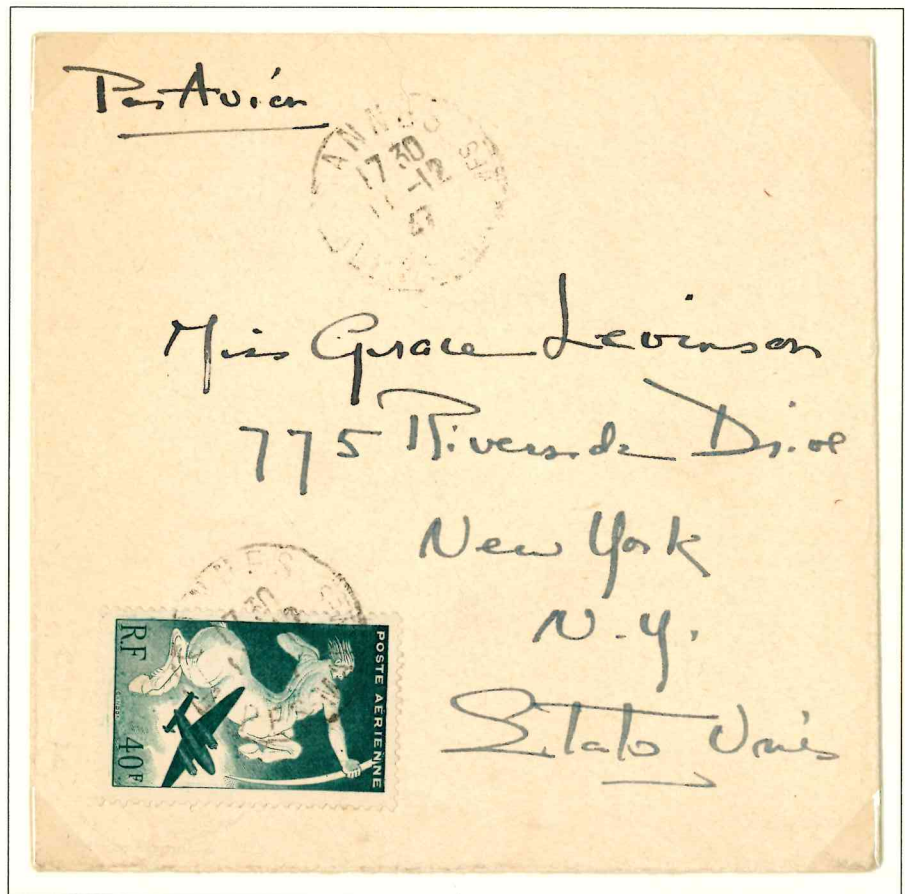 Par Avion
ANNES
17 30
-12
Miss Grace Levinson
775 Riverside Drive
New York
N.Y.
Etats Unis
NNES
30
RF
POSTE AÉRIENNE
40F